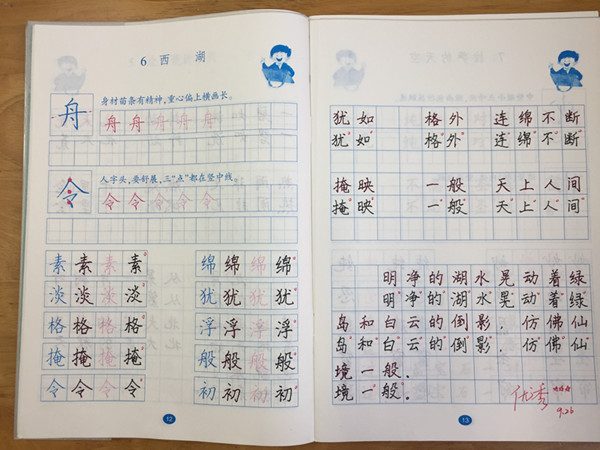 6 西 湖
身材苗条有精神,重心偏上横画长。
舟 舟 舟 舟 舟 舟
人字头,要舒展,三“点”都在竖中线。
令 令 令 令 令 令
素 素 素 素 绵 绵 绵 绵
淡 淡 淡 淡 犹 犹 犹 犹
格 格 格 格 浮 浮 浮 浮
掩 掩 掩 掩 般 般 般 般
令 令 令 令 初 初 初 初
12
犹如 格外 连绵不断
犹如 格外 连绵不断
掩映 一般 天上人间
掩映 一般 天上人间
明净的湖水晃动着绿
明净的湖水晃动着绿
岛和白云的倒影,仿佛仙
岛和白云的倒影,仿佛仙
境一般。
境一般。
优秀
9.26
13